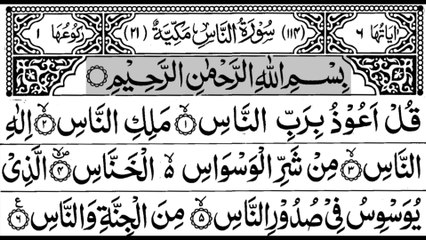 اٰيَاتُهَا ٦ (١١٤) سُوْرَةُ النَّاسِ مَكِّيَّةٌ (٢١) رُكُوْعُهَا ١
بِسْمِ اللهِ الرَّحْمٰنِ الرَّحِيْمِ
قُلْ اَعُوْذُ بِرَبِّ النَّاسِ ۙ﴿١﴾ مَلِكِ النَّاسِ ۙ﴿٢﴾ اِلٰهِ
النَّاسِ ۙ﴿٣﴾ مِنْ شَرِّ الْوَسْوَاسِ ۙ۬ الْخَنَّاسِ ۪ۙ﴿٤﴾ الَّذِیْ
یُوَسْوِسُ فِیْ صُدُوْرِ النَّاسِ ۙ﴿٥﴾ مِنَ الْجِنَّةِ وَالنَّاسِ ﴿٦﴾ ع